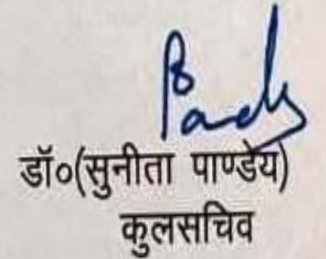 डॉ०(सुनीता पाण्डेय)
कुलसचिव